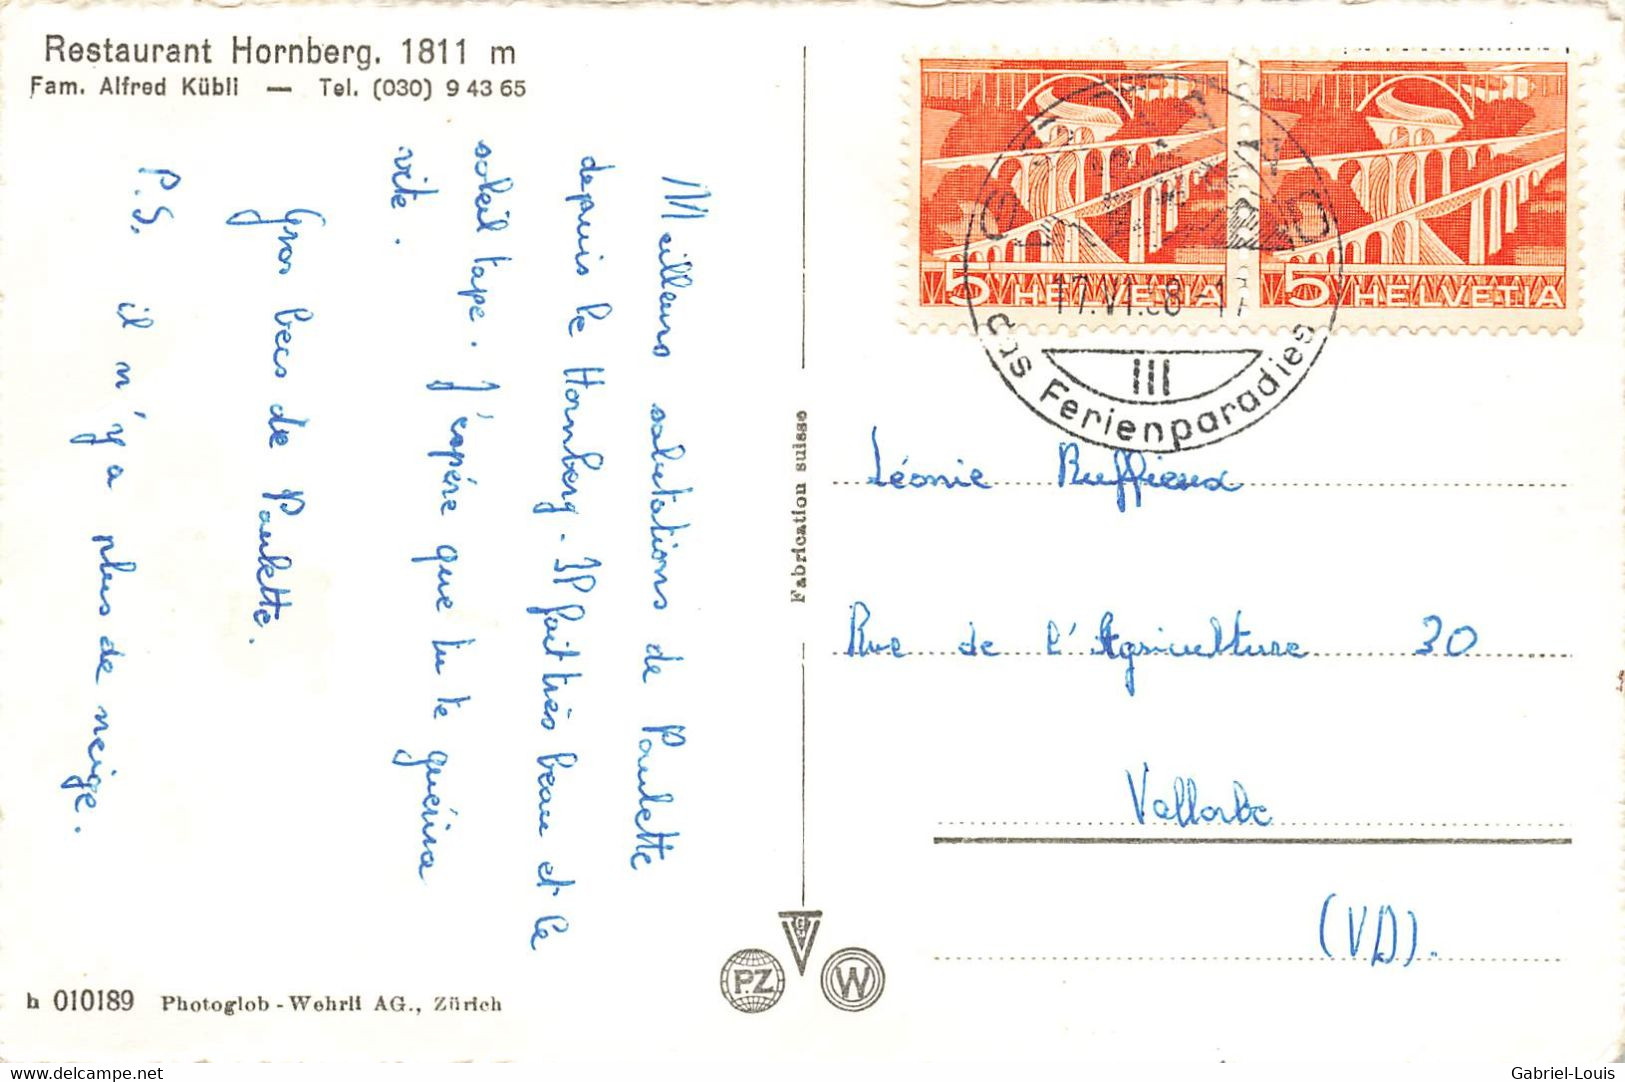 Restaurant Hornberg. 1811 m
Fam. Alfred Kübli — Tel. (030) 9 43 65
Meilleurs salutations de Paulette
depuis le Hornberg. Il fait très beau et le
soleil tape. J'éspére que tu te guérira
vite.
Gros becs de Paulette.
P.S. il n'y a plus de neige.
h 010189 Photoglob - Wehrli AG., Zürich
Fabrication suisse
PZ
W
5 HELVETIA
5 HELVETIA
17.VI.58
III
das Ferienparadies
Léonie Ruffieux
Rue de l'Agriculture 30
Vallorbe
(VD).
www.delcampe.net
Gabriel-Louis